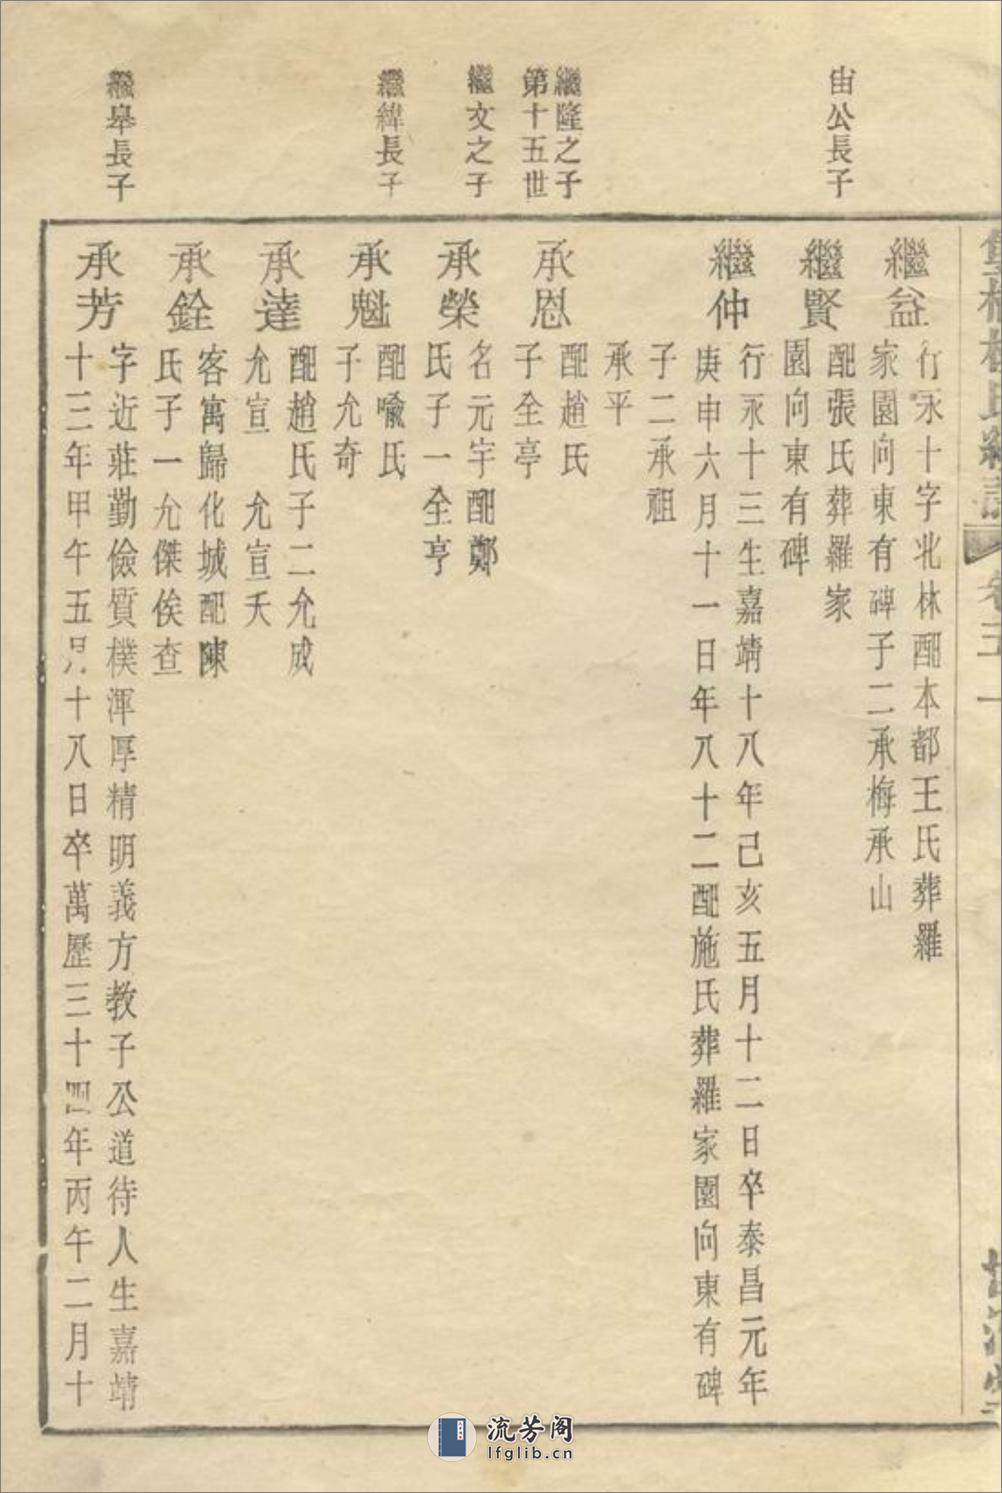 由公長子
繼隆之子
第十五世
繼文之子
繼緯長子
繼皋長子
卷三
繼益
行永十字北林配本都王氏葬羅
家園向東有碑子二承梅承山
繼賢
配張氏葬羅家
園向東有碑
繼仲
行永十三生嘉靖十八年己亥五月十二日卒泰昌元年
庚申六月十一日年八十二配施氏葬羅家園向東有碑
子二承祖
承平
承恩
配趙氏
子全亭
承榮
名元宇配鄭
氏子一全亨
承魁
配喻氏
子允奇
承達
配趙氏子二允成
允宣 允宣夭
承銓
客寓歸化城配陳
氏子一允傑俟查
承芳
字近莊勤儉質樸渾厚精明義方教子公道待人生嘉靖
十三年甲午五月十八日卒萬歷三十四年丙午二月十
流芳阁
lfglib.cn